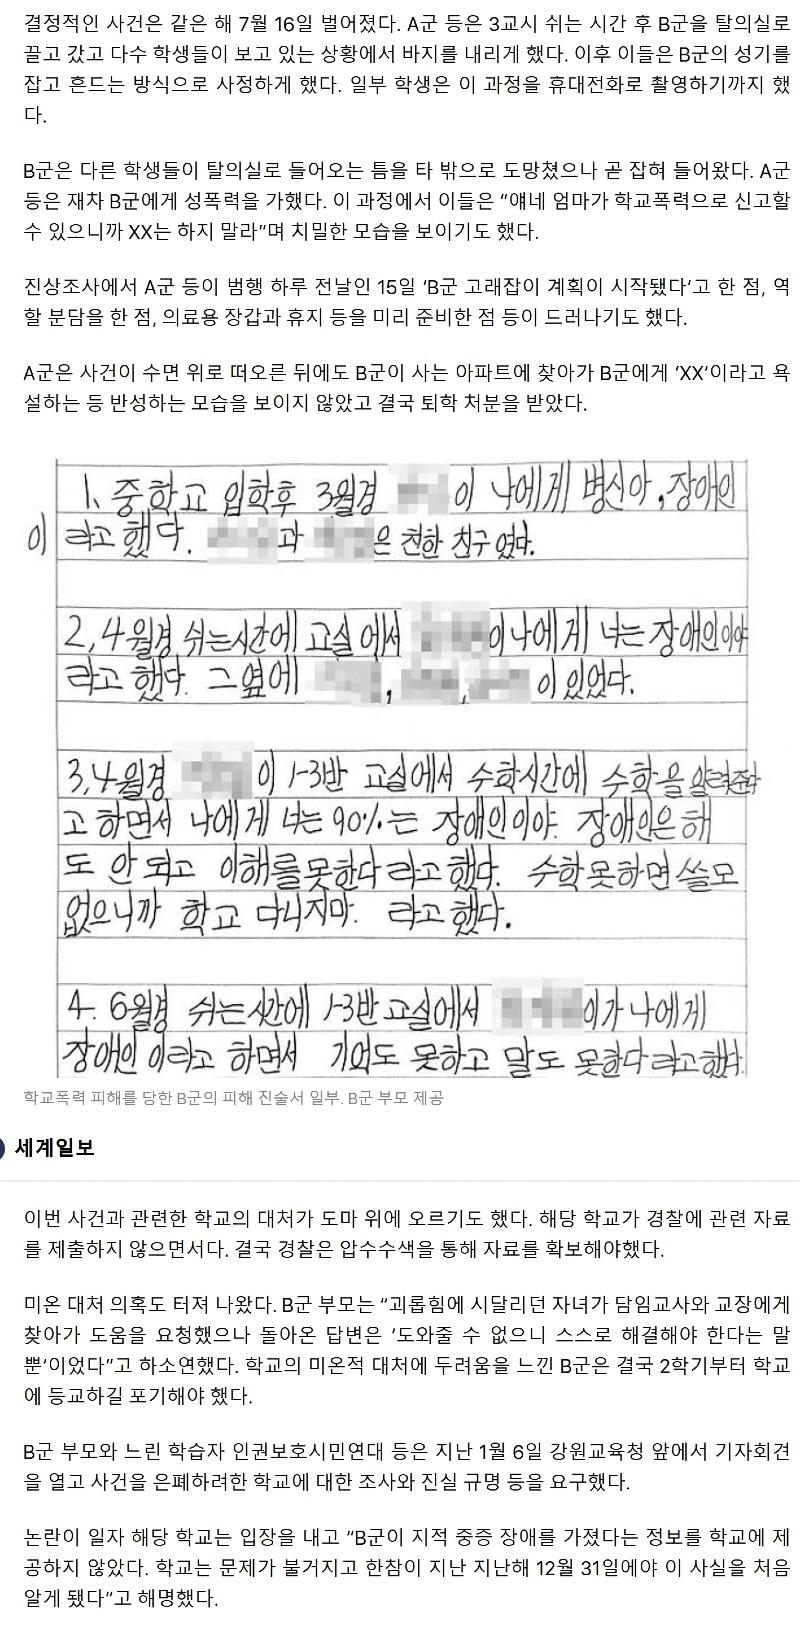 결정적인 사건은 같은 해 7월 16일 벌어졌다. A군 등은 3교시 쉬는 시간 후 B군을 탈의실로
끌고 갔고 다수 학생들이 보고 있는 상황에서 바지를 내리게 했다. 이후 이들은 B군의 성기를
잡고 흔드는 방식으로 사정하게 했다. 일부 학생은 이 과정을 휴대전화로 촬영하기까지 했
다.
B군은 다른 학생들이 탈의실로 들어오는 틈을 타 밖으로 도망쳤으나 곧 잡혀 들어왔다. A군
등은 재차 B군에게 성폭력을 가했다. 이 과정에서 이들은 "얘네 엄마가 학교폭력으로 신고할
수 있으니까 XX는 하지 말라"며 치밀한 모습을 보이기도 했다.
진상조사에서 A군 등이 범행 하루 전날인 15일 'B군 고래잡이 계획이 시작됐다'고 한 점, 역
할 분담을 한 점, 의료용 장갑과 휴지 등을 미리 준비한 점 등이 드러나기도 했다.
A군은 사건이 수면 위로 떠오른 뒤에도 B군이 사는 아파트에 찾아가 B군에게 'XX'이라고 욕
설하는 등 반성하는 모습을 보이지 않았고 결국 퇴학 처분을 받았다.
1. 중학교 입학후 3월경 이 나에게 병신아, 장애인
이라고 했다. 과 은 친한 친구였다.
2, 4월경 쉬는시간에 교실에서 이 나에게 너는 장애인이야
라고 했다. 그 옆에 , , 이 있었다.
3, 4월경 이 1-3반 교실에서 수학시간에 수학을 알려준다
고 하면서 나에게 너는 90%는 장애인이야. 장애인은 해
도 안 되고 이해를 못한다 라고 했다. 수학 못하면 쓸모
없으니까 학교 다니지마. 라고 했다.
4. 6월경 쉬는시간에 1-3반 교실에서 이가 나에게
장애인 이라고 하면서 기억도 못하고 말도 못한다 라고 했다.
학교폭력 피해를 당한 B군의 피해 진술서 일부. B군 부모 제공
세계일보
이번 사건과 관련한 학교의 대처가 도마 위에 오르기도 했다. 해당 학교가 경찰에 관련 자료
를 제출하지 않으면서다. 결국 경찰은 압수수색을 통해 자료를 확보해야했다.
미온 대처 의혹도 터져 나왔다. B군 부모는 "괴롭힘에 시달리던 자녀가 담임교사와 교장에게
찾아가 도움을 요청했으나 돌아온 답변은 '도와줄 수 없으니 스스로 해결해야 한다는 말
뿐'이었다"고 하소연했다. 학교의 미온적 대처에 두려움을 느낀 B군은 결국 2학기부터 학교
에 등교하길 포기해야 했다.
B군 부모와 느린 학습자 인권보호시민연대 등은 지난 1월 6일 강원교육청 앞에서 기자회견
을 열고 사건을 은폐하려한 학교에 대한 조사와 진실 규명 등을 요구했다.
논란이 일자 해당 학교는 입장을 내고 "B군이 지적 중증 장애를 가졌다는 정보를 학교에 제
공하지 않았다. 학교는 문제가 불거지고 한참이 지난 지난해 12월 31일에야 이 사실을 처음
알게 됐다"고 해명했다.